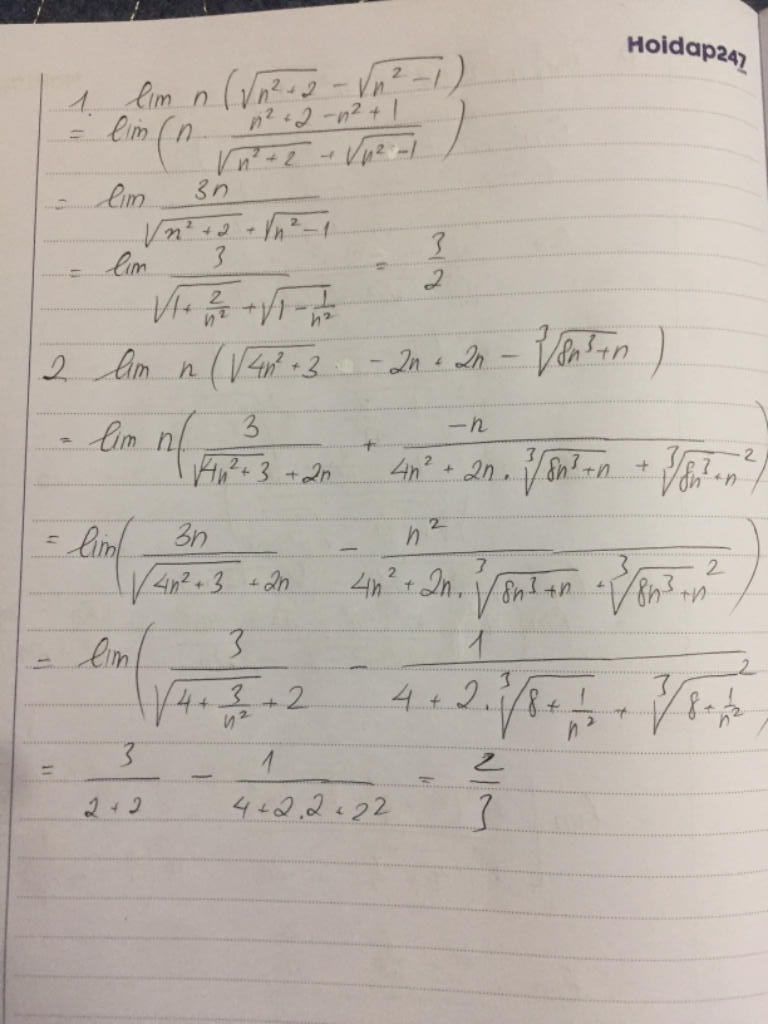 Hoidap247
1. lim n(√(n²+2) - √(n²-1))
= lim(n. (n²+2-n²+1)/(√(n²+2) + √(n²-1)))
= lim 3n/(√(n²+2) + √(n²-1))
= lim 3/(√(1+2/n²) + √(1-1/n²)) = 3/2
2 lim n(√(4n²+3) - 2n + 2n - ∛(8n³+n))
= lim n(3/(√(4n²+3) + 2n) + -n/(4n² + 2n.∛(8n³+n) + ∛(8n³+n)²))
= lim(3n/(√(4n²+3) + 2n) - n²/(4n² + 2n.∛(8n³+n) + ∛(8n³+n)²))
= lim(3/(√(4+3/n²) + 2) - 1/(4 + 2.∛(8+1/n²) + ∛(8+1/n²)²))
= 3/(2+2) - 1/(4+2.2+2²) = 2/3